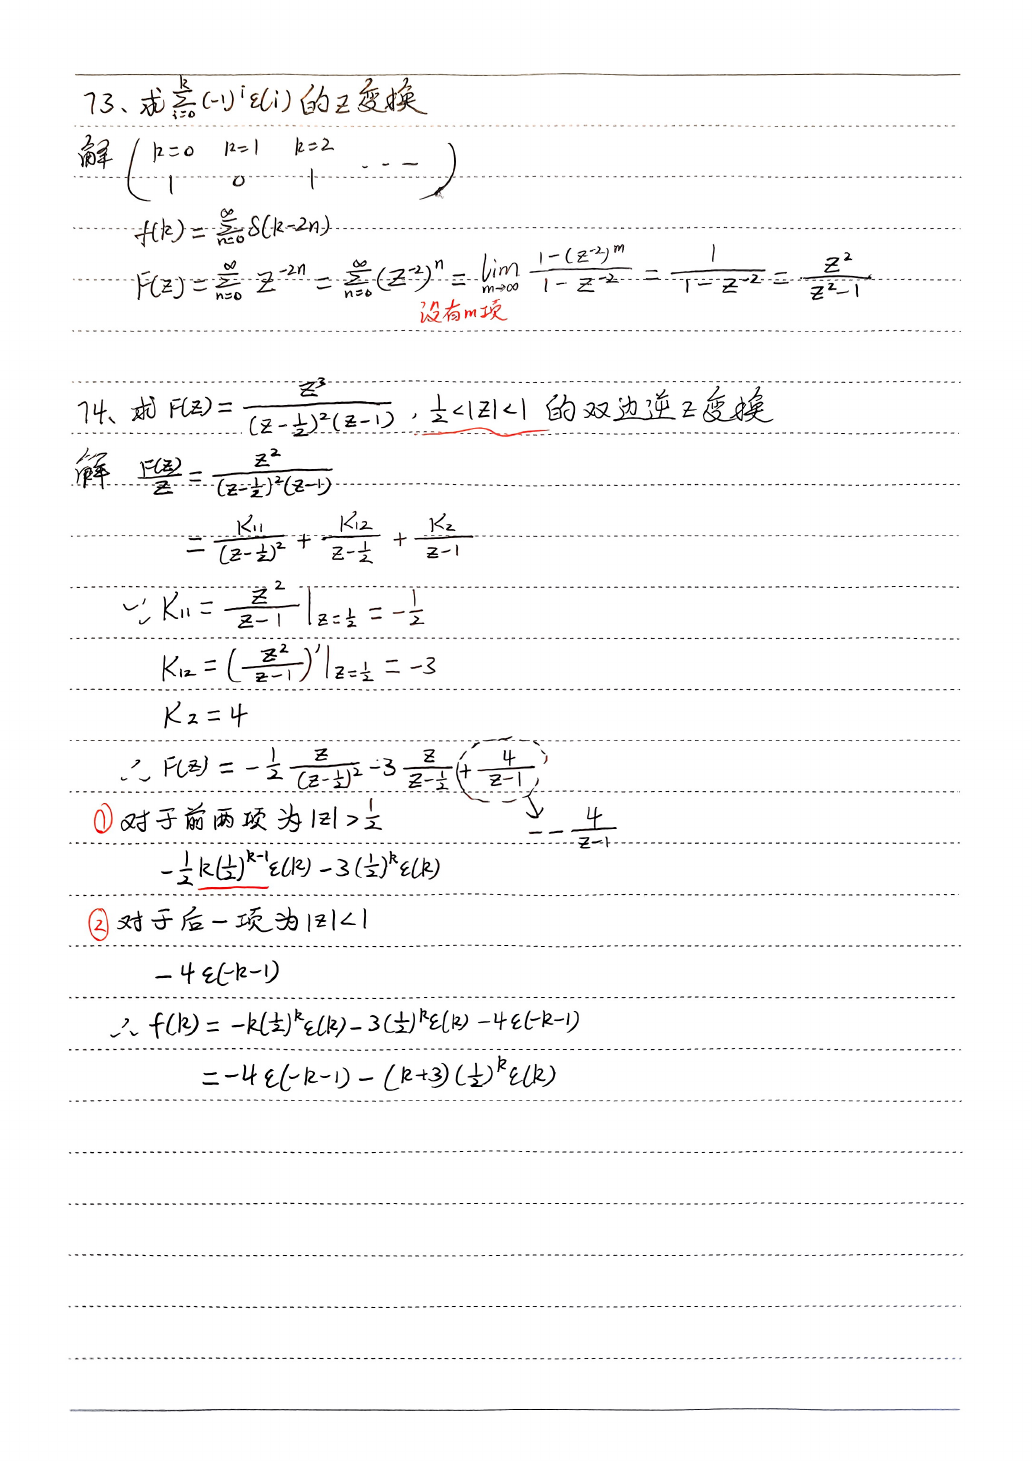 73、求∑_{i=0}^{k}(-1)^i ε(i) 的Z变换
解 ( k=0 k=1 k=2 ----
1 0 1 )
f(k) = ∑_{n=0}^{∞} δ(k-2n)
F(z) = ∑_{n=0}^{∞} Z^{-2n} = ∑_{n=0}^{∞} (Z^{-2})^n = lim_{m→∞} \frac{1-(Z^{-2})^m}{1-Z^{-2}} = \frac{1}{1-Z^{-2}} = \frac{Z^2}{Z^2-1}
设有m项
74、求 F(z) = \frac{Z^3}{(Z-\frac{1}{2})^2(Z-1)}, \frac{1}{2}<|Z|<1 的双边逆Z变换
解 \frac{F(z)}{Z} = \frac{Z^2}{(Z-\frac{1}{2})^2(Z-1)}
= \frac{K_{11}}{(Z-\frac{1}{2})^2} + \frac{K_{12}}{Z-\frac{1}{2}} + \frac{K_2}{Z-1}
∵ K_{11} = \frac{Z^2}{Z-1}|_{Z=\frac{1}{2}} = -\frac{1}{2}
K_{12} = (\frac{Z^2}{Z-1})'|_{Z=\frac{1}{2}} = -3
K_2 = 4
∴ F(z) = -\frac{1}{2} \frac{Z}{(Z-\frac{1}{2})^2} -3 \frac{Z}{Z-\frac{1}{2}} + \frac{4}{Z-1}
① 对于前两项为|Z|>\frac{1}{2}
-- \frac{4}{Z-1}
-\frac{1}{2} k(\frac{1}{2})^{k-1} ε(k) -3(\frac{1}{2})^k ε(k)
② 对于后一项为|Z|<1
-4ε(-k-1)
∴ f(k) = -k(\frac{1}{2})^k ε(k) -3(\frac{1}{2})^k ε(k) -4ε(-k-1)
= -4ε(-k-1) - (k+3)(\frac{1}{2})^k ε(k)